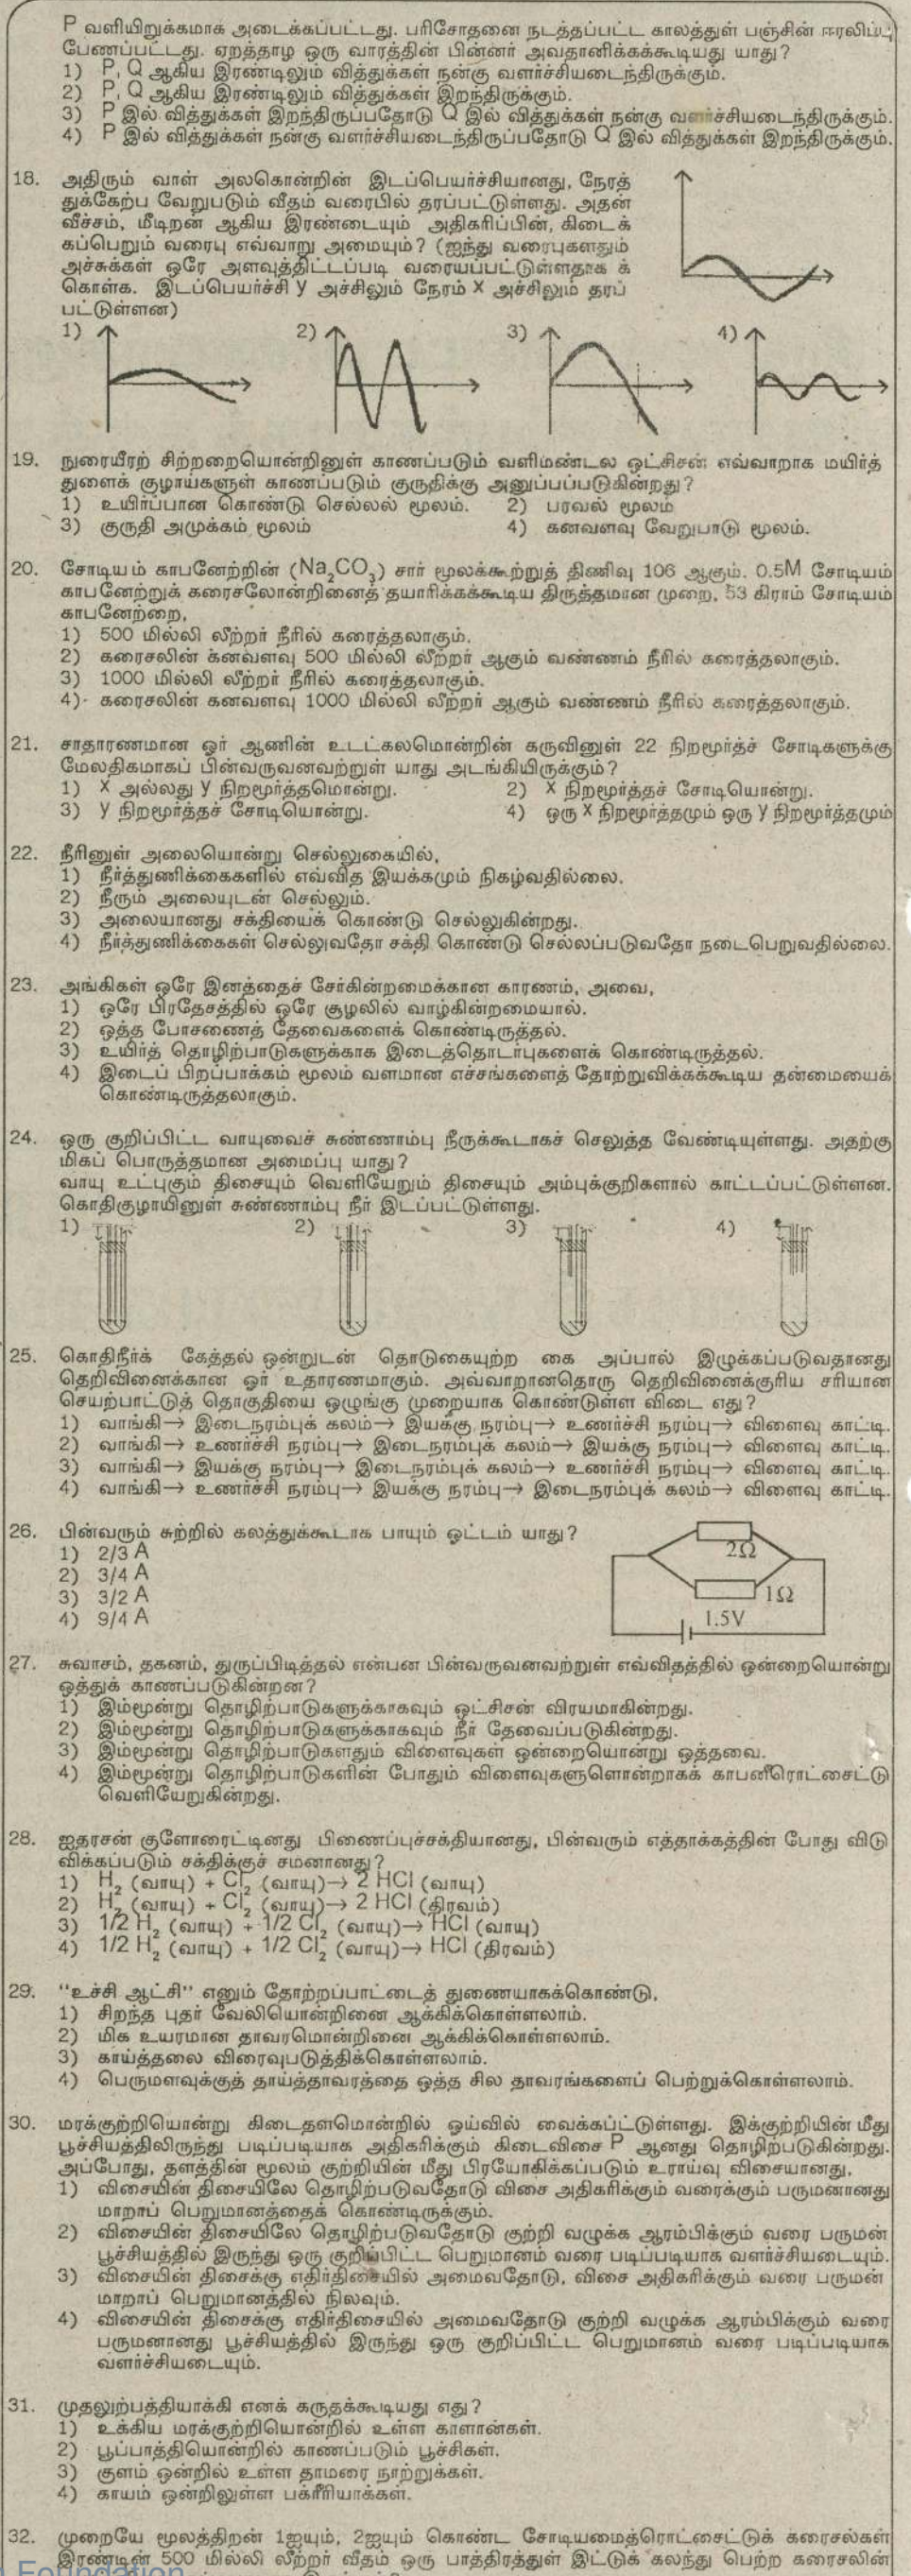 P வளியிறுக்கமாக அடைக்கப்பட்டது. பரிசோதனை நடத்தப்பட்ட காலத்துள் பஞ்சின் ஈரலிப்பு
பேணப்பட்டது. ஏறத்தாழ ஒரு வாரத்தின் பின்னர் அவதானிக்கக்கூடியது யாது?
1) P, Q ஆகிய இரண்டிலும் வித்துக்கள் நன்கு வளர்ச்சியடைந்திருக்கும்.
2) P, Q ஆகிய இரண்டிலும் வித்துக்கள் இறந்திருக்கும்.
3) P இல் வித்துக்கள் இறந்திருப்பதோடு Q இல் வித்துக்கள் நன்கு வளர்ச்சியடைந்திருக்கும்.
4) P இல் வித்துக்கள் நன்கு வளர்ச்சியடைந்திருப்பதோடு Q இல் வித்துக்கள் இறந்திருக்கும்.
18. அதிரும் வாள் அலகொன்றின் இடப்பெயர்ச்சியானது, நேரத்
துக்கேற்ப வேறுபடும் வீதம் வரைபில் தரப்பட்டுள்ளது. அதன்
வீச்சம், மீடிறன் ஆகிய இரண்டையும் அதிகரிப்பின், கிடைக்
கப்பெறும் வரைபு எவ்வாறு அமையும்? (ஐந்து வரைபுகளதும்
அச்சுக்கள் ஒரே அளவுத்திட்டப்படி வரையப்பட்டுள்ளதாக க்
கொள்க. இடப்பெயர்ச்சி y அச்சிலும் நேரம் x அச்சிலும் தரப்
பட்டுள்ளன)
1) 2) 3) 4)
19. நுரையீரற் சிற்றறையொன்றினுள் காணப்படும் வளிமண்டல ஒட்சிசன் எவ்வாறாக மயிர்த்
துளைக் குழாய்களுள் காணப்படும் குருதிக்கு அனுப்பப்படுகின்றது?
1) உயிர்ப்பான கொண்டு செல்லல் மூலம். 2) பரவல் மூலம்
3) குருதி அமுக்கம் மூலம் 4) கனவளவு வேறுபாடு மூலம்.
20. சோடியம் காபனேற்றின் (Na₂CO₃) சார் மூலக்கூற்றுத் திணிவு 106 ஆகும். 0.5M சோடியம்
காபனேற்றுக் கரைசலோன்றினைத் தயாரிக்கக்கூடிய திருத்தமான முறை, 53 கிராம் சோடியம்
காபனேற்றை,
1) 500 மில்லி லீற்றர் நீரில் கரைத்தலாகும்.
2) கரைசலின் கனவளவு 500 மில்லி லீற்றர் ஆகும் வண்ணம் நீரில் கரைத்தலாகும்.
3) 1000 மில்லி லீற்றர் நீரில் கரைத்தலாகும்.
4) கரைசலின் கனவளவு 1000 மில்லி லீற்றர் ஆகும் வண்ணம் நீரில் கரைத்தலாகும்.
21. சாதாரணமான ஓர் ஆணின் உடட்கலமொன்றின் கருவினுள் 22 நிறமூர்த்ச் சோடிகளுக்கு
மேலதிகமாகப் பின்வருவனவற்றுள் யாது அடங்கியிருக்கும்?
1) x அல்லது y நிறமூர்த்தமொன்று. 2) x நிறமூர்த்தச் சோடியொன்று.
3) y நிறமூர்த்தச் சோடியொன்று. 4) ஒரு x நிறமூர்த்தமும் ஒரு y நிறமூர்த்தமும்
22. நீரினுள் அலையொன்று செல்லுகையில்,
1) நீர்த்துணிக்கைகளில் எவ்வித இயக்கமும் நிகழ்வதில்லை.
2) நீரும் அலையுடன் செல்லும்.
3) அலையானது சக்தியைக் கொண்டு செல்லுகின்றது.
4) நீர்த்துணிக்கைகள் செல்லுவதோ சக்தி கொண்டு செல்லப்படுவதோ நடைபெறுவதில்லை.
23. அங்கிகள் ஒரே இனத்தைச் சேர்கின்றமைக்கான காரணம், அவை,
1) ஒரே பிரதேசத்தில் ஒரே சூழலில் வாழ்கின்றமையால்.
2) ஒத்த போசணைத் தேவைகளைக் கொண்டிருத்தல்.
3) உயிர்த் தொழிற்பாடுகளுக்காக இடைத்தொடர்புகளைக் கொண்டிருத்தல்.
4) இடைப் பிறப்பாக்கம் மூலம் வளமான எச்சங்களைத் தோற்றுவிக்கக்கூடிய தன்மையைக்
கொண்டிருத்தலாகும்.
24. ஒரு குறிப்பிட்ட வாயுவைச் சுண்ணாம்பு நீருக்கூடாகச் செலுத்த வேண்டியுள்ளது. அதற்கு
மிகப் பொருத்தமான அமைப்பு யாது?
வாயு உட்புகும் திசையும் வெளியேறும் திசையும் அம்புக்குறிகளால் காட்டப்பட்டுள்ளன.
கொதிகுழாயினுள் சுண்ணாம்பு நீர் இடப்பட்டுள்ளது.
1) 2) 3) 4)
25. கொதிநீர்க் கேத்தல் ஒன்றுடன் தொடுகையுற்ற கை அப்பால் இழுக்கப்படுவதானது
தெறிவினைக்கான ஓர் உதாரணமாகும். அவ்வாறானதொரு தெறிவினைக்குரிய சரியான
செயற்பாட்டுத் தொகுதியை ஒழுங்கு முறையாக கொண்டுள்ள விடை எது?
1) வாங்கி→ இடைநரம்புக் கலம்→ இயக்கு நரம்பு→ உணர்ச்சி நரம்பு→ விளைவு காட்டி.
2) வாங்கி→ உணர்ச்சி நரம்பு→ இடைநரம்புக் கலம்→ இயக்கு நரம்பு→ விளைவு காட்டி.
3) வாங்கி→ இயக்கு நரம்பு→ இடைநரம்புக் கலம்→ உணர்ச்சி நரம்பு→ விளைவு காட்டி.
4) வாங்கி→ உணர்ச்சி நரம்பு→ இயக்கு நரம்பு→ இடைநரம்புக் கலம்→ விளைவு காட்டி.
26. பின்வரும் சுற்றில் கலத்துக்கூடாக பாயும் ஓட்டம் யாது?
1) 2/3 A
2) 3/4 A
3) 3/2 A
4) 9/4 A
2Ω
1Ω
1.5V
27. சுவாசம், தகனம், துருப்பிடித்தல் என்பன பின்வருவனவற்றுள் எவ்விதத்தில் ஒன்றையொன்று
ஒத்துக் காணப்படுகின்றன?
1) இம்மூன்று தொழிற்பாடுகளுக்காகவும் ஒட்சிசன் விரயமாகின்றது.
2) இம்மூன்று தொழிற்பாடுகளுக்காகவும் நீர் தேவைப்படுகின்றது.
3) இம்மூன்று தொழிற்பாடுகளதும் விளைவுகள் ஒன்றையொன்று ஒத்தவை.
4) இம்மூன்று தொழிற்பாடுகளின் போதும் விளைவுகளுளொன்றாகக் காபனீரொட்சைட்டு
வெளியேறுகின்றது.
28. ஐதரசன் குளோரைட்டினது பிணைப்புச்சக்தியானது, பின்வரும் எத்தாக்கத்தின் போது விடு
விக்கப்படும் சக்திக்குச் சமனானது?
1) H₂ (வாயு) + Cl₂ (வாயு)→ 2 HCl (வாயு)
2) H₂ (வாயு) + Cl₂ (வாயு)→ 2 HCl (திரவம்)
3) 1/2 H₂ (வாயு) + 1/2 Cl₂ (வாயு)→ HCl (வாயு)
4) 1/2 H₂ (வாயு) + 1/2 Cl₂ (வாயு)→ HCl (திரவம்)
29. “உச்சி ஆட்சி” எனும் தோற்றப்பாட்டைத் துணையாகக்கொண்டு,
1) சிறந்த புதர் வேலியொன்றினை ஆக்கிக்கொள்ளலாம்.
2) மிக உயரமான தாவரமொன்றினை ஆக்கிக்கொள்ளலாம்.
3) காய்த்தலை விரைவுபடுத்திக்கொள்ளலாம்.
4) பெருமளவுக்குத் தாய்த்தாவரத்தை ஒத்த சில தாவரங்களைப் பெற்றுக்கொள்ளலாம்.
30. மரக்குற்றியொன்று கிடைதளமொன்றில் ஓய்வில் வைக்கப்ட்டுள்ளது. இக்குற்றியின் மீது
பூச்சியத்திலிருந்து படிப்படியாக அதிகரிக்கும் கிடைவிசை P ஆனது தொழிற்படுகின்றது.
அப்போது, தளத்தின் மூலம் குற்றியின் மீது பிரயோகிக்கப்படும் உராய்வு விசையானது,
1) விசையின் திசையிலே தொழிற்படுவதோடு விசை அதிகரிக்கும் வரைக்கும் பருமனானது
மாறாப் பெறுமானத்தைக் கொண்டிருக்கும்.
2) விசையின் திசையிலே தொழிற்படுவதோடு குற்றி வழுக்க ஆரம்பிக்கும் வரை பருமன்
பூச்சியத்தில் இருந்து ஒரு குறிப்பிட்ட பெறுமானம் வரை படிப்படியாக வளர்ச்சியடையும்.
3) விசையின் திசைக்கு எதிர்திசையில் அமைவதோடு, விசை அதிகரிக்கும் வரை பருமன்
மாறாப் பெறுமானத்தில் நிலவும்.
4) விசையின் திசைக்கு எதிர்திசையில் அமைவதோடு குற்றி வழுக்க ஆரம்பிக்கும் வரை
பருமனானது பூச்சியத்தில் இருந்து ஒரு குறிப்பிட்ட பெறுமானம் வரை படிப்படியாக
வளர்ச்சியடையும்.
31. முதலுற்பத்தியாக்கி எனக் கருதக்கூடியது எது?
1) உக்கிய மரக்குற்றியொன்றில் உள்ள காளான்கள்.
2) பூப்பாத்தியொன்றில் காணப்படும் பூச்சிகள்.
3) குளம் ஒன்றில் உள்ள தாமரை நாற்றுக்கள்.
4) காயம் ஒன்றிலுள்ள பக்ரீரியாக்கள்.
32. முறையே மூலத்திறன் 1ஐயும், 2ஐயும் கொண்ட சோடியமைத்ரொட்சைட்டுக் கரைசல்கள்
இரண்டின் 500 மில்லி லீற்றர் வீதம் ஒரு பாத்திரத்துள் இட்டுக் கலந்து பெற்ற கரைசலின்
Foundation